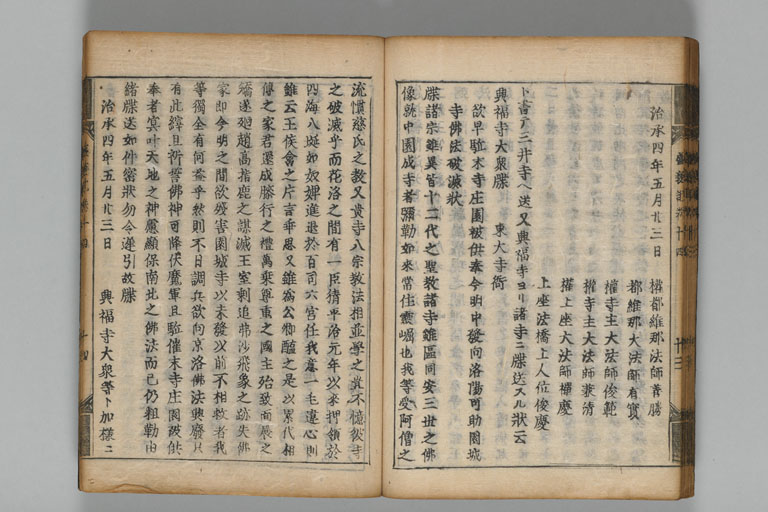 治承四年五月廿三日
權都維那法師菩勝
都維那大法師有實
權寺主大法師俊範
權寺主大法師兼清
權上座大法師場慶
上座法橋上人位俊慶
ト書テ三井寺ヘ送又興福寺ヨリ諸寺ニ牒送スル狀云
興福寺大衆牒 東大寺衙
欲早駈本寺庄園被供奉今明中發向洛陽可助園城
寺佛法破滅狀
牒諸宗雖異皆十二代之聖教諸寺雖區同安三世之佛
像就中園成寺者彌勒如來當住靈崛也我等受阿僧之
流慣慈氏之教又貴寺八宗教法相並學之豈不憶彼寺
之破滅乎而花洛之間有一臣猜平治元年以來押領於
四海八埏如奴婢進退於百司六宮任我意一毛違心則
雖云王侯會之片言乖思又雖為公卿醢之是以累代相
傳之家君還成膝行之禮萬乘尊重之國主殆致面展之
嬌遂廻趙高指鹿之謀滅王室剩追弗沙飛象之跡失佛
家即今明之間欲發害園城寺以未發以前不相救者我
等獨全有何益乎然則不日調兵欲向京洛佛法興廢只
有此繹且祈誓佛神可降伏魔軍且駈催末寺庄園被供
奉者冥叶天地之神慮顯保南北之佛法而已仍粗勒由
緒牒送如件密狀勿令遲引故牒
治承四年五月廿三日
興福寺大衆等ト加樣ニ